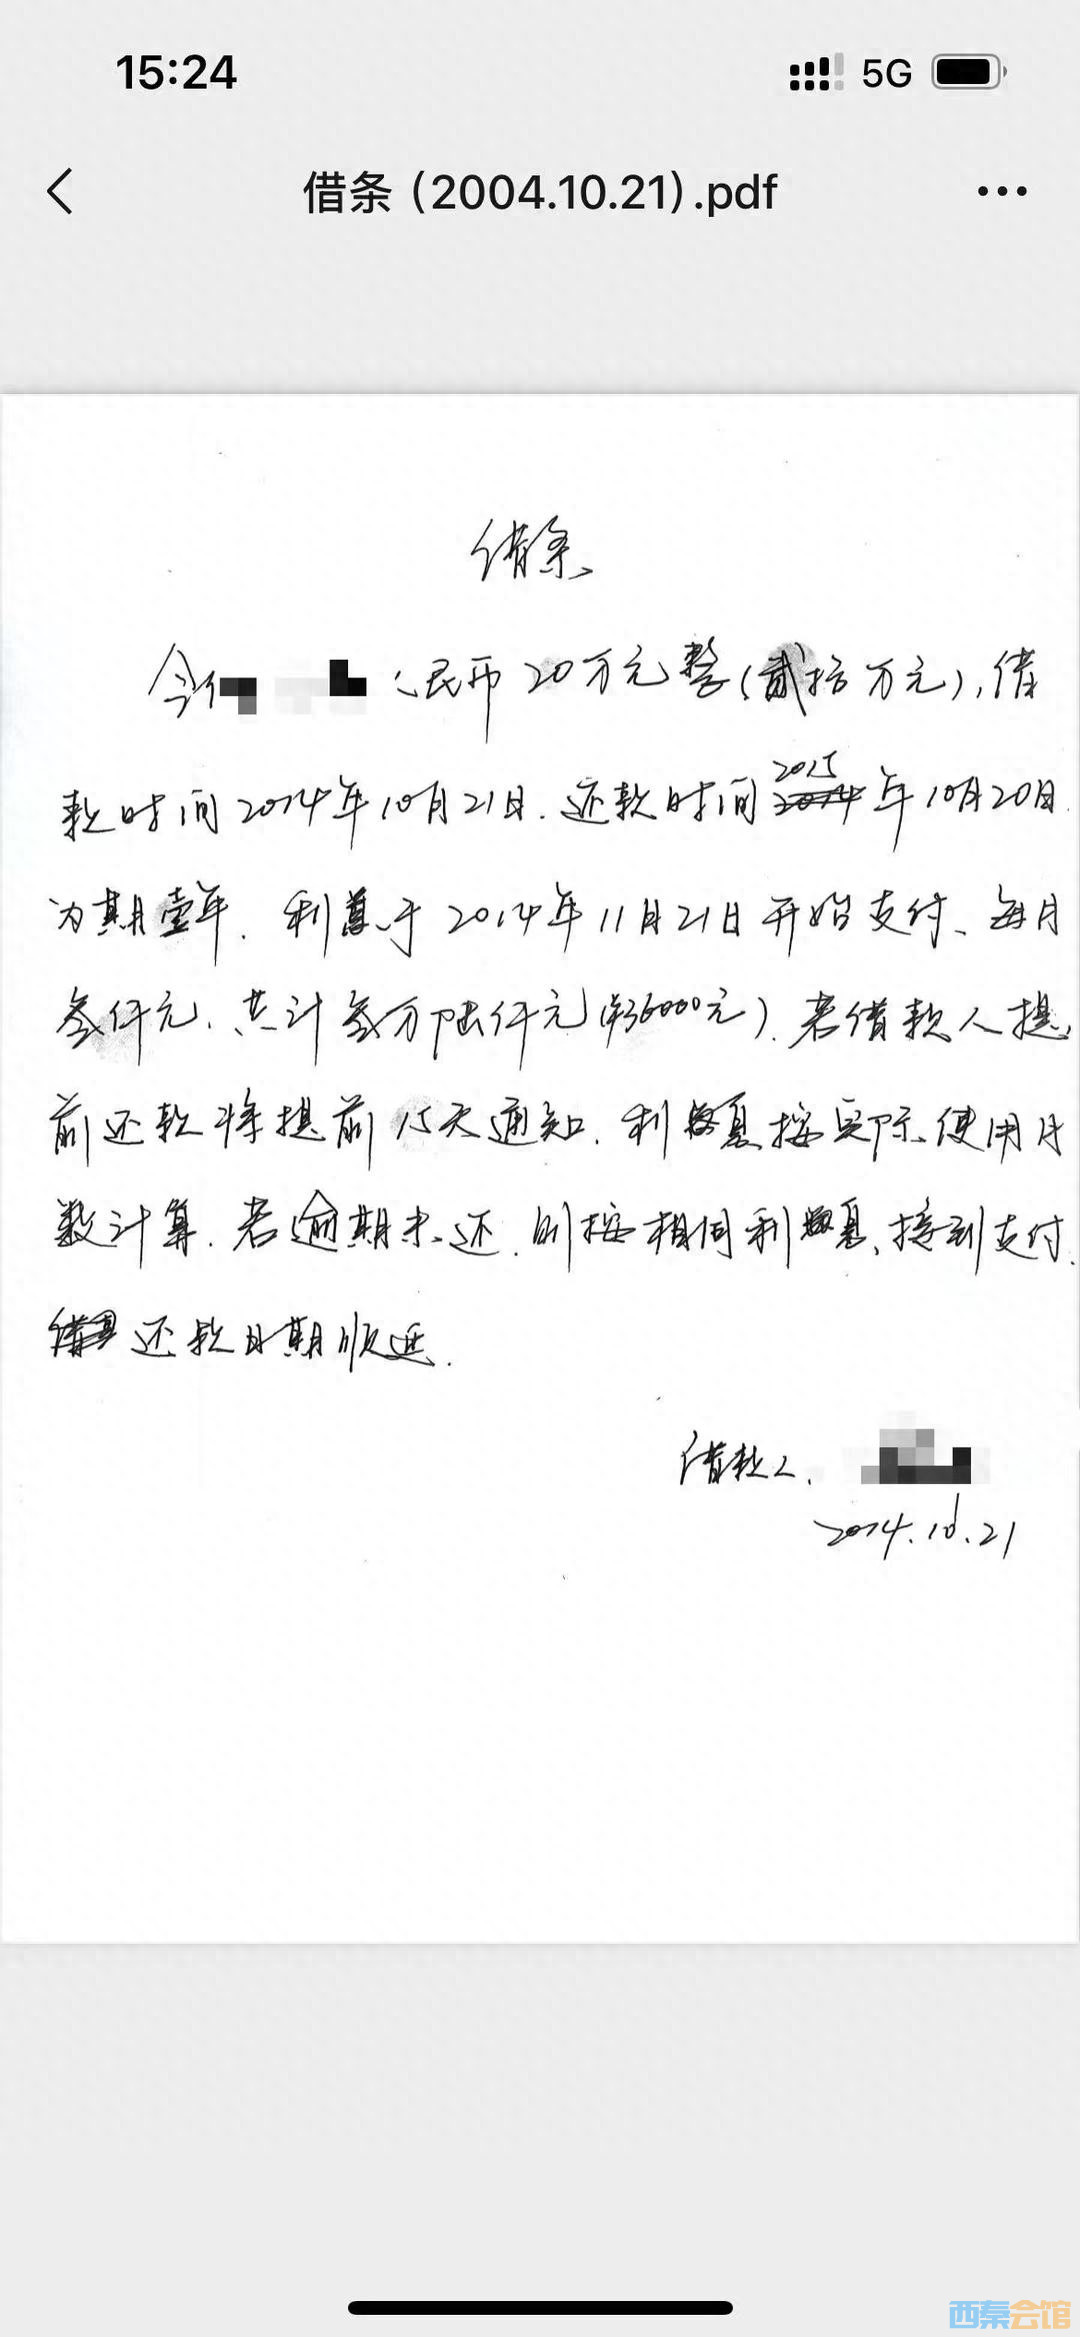 15:24
5G
借条 (2004.10.21).pdf
借条
今借 民币20万元整(贰拾万元),借
款时间2014年10月21日.还款时间2015年10月20日.
为期壹年.利息于2014年11月21日开始支付、每月
叁仟元.共计叁万陆仟元(¥36000元).若借款人提
前还款将提前15天通知.利息按实际使用月
数计算.若逾期未还.则按相同利息,接到支付.
还款日期顺延.
借款人.
2014.10.21
西秦会馆